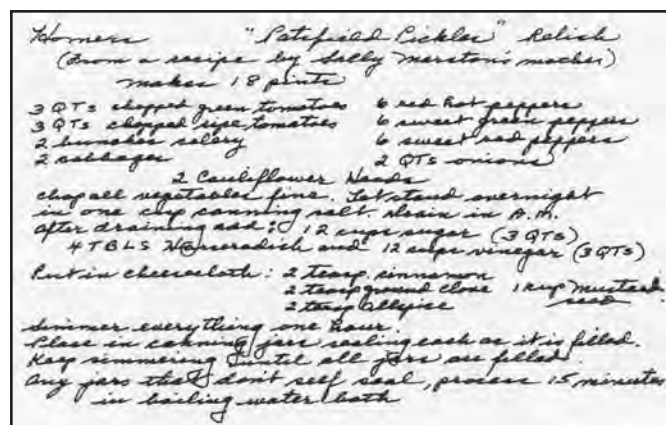 Homers "Patsfield Pickles" Relish
(From a recipe by Sally Marston's mother)
makes 18 pints
3 QTs chopped green tomatoes 6 red hot peppers
3 QTs chopped ripe tomatoes 6 sweet green peppers
2 bunches celery 6 sweet red peppers
2 cabbages 2 QTs onions
2 Cauliflower Heads
chop all vegetables fine. Let stand overnight
in one cup canning salt. Drain in A.M.
After draining add: 12 cups sugar (3 QTS)
4 TBLS Horseradish and 12 cups vinegar (3 QTS)
Put in cheesecloth: 2 teasp. cinnamon
2 teasp ground clove 1 cup mustard
2 teasp allspice seed
Simmer everything one hour.
Place in canning jars sealing each as it is filled.
Keep simmering until all jars are filled.
Any jars that don't self seal, process 15 minutes
in boiling water bath